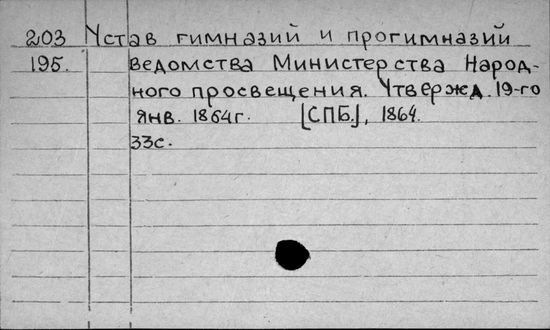 203 Устав гимназий и прогимназий
195. ведомства Министерства Народ-
ного просвещения. Утвержд. 19-го
янв. 1864г. [СПБ.], 1864.
33с.